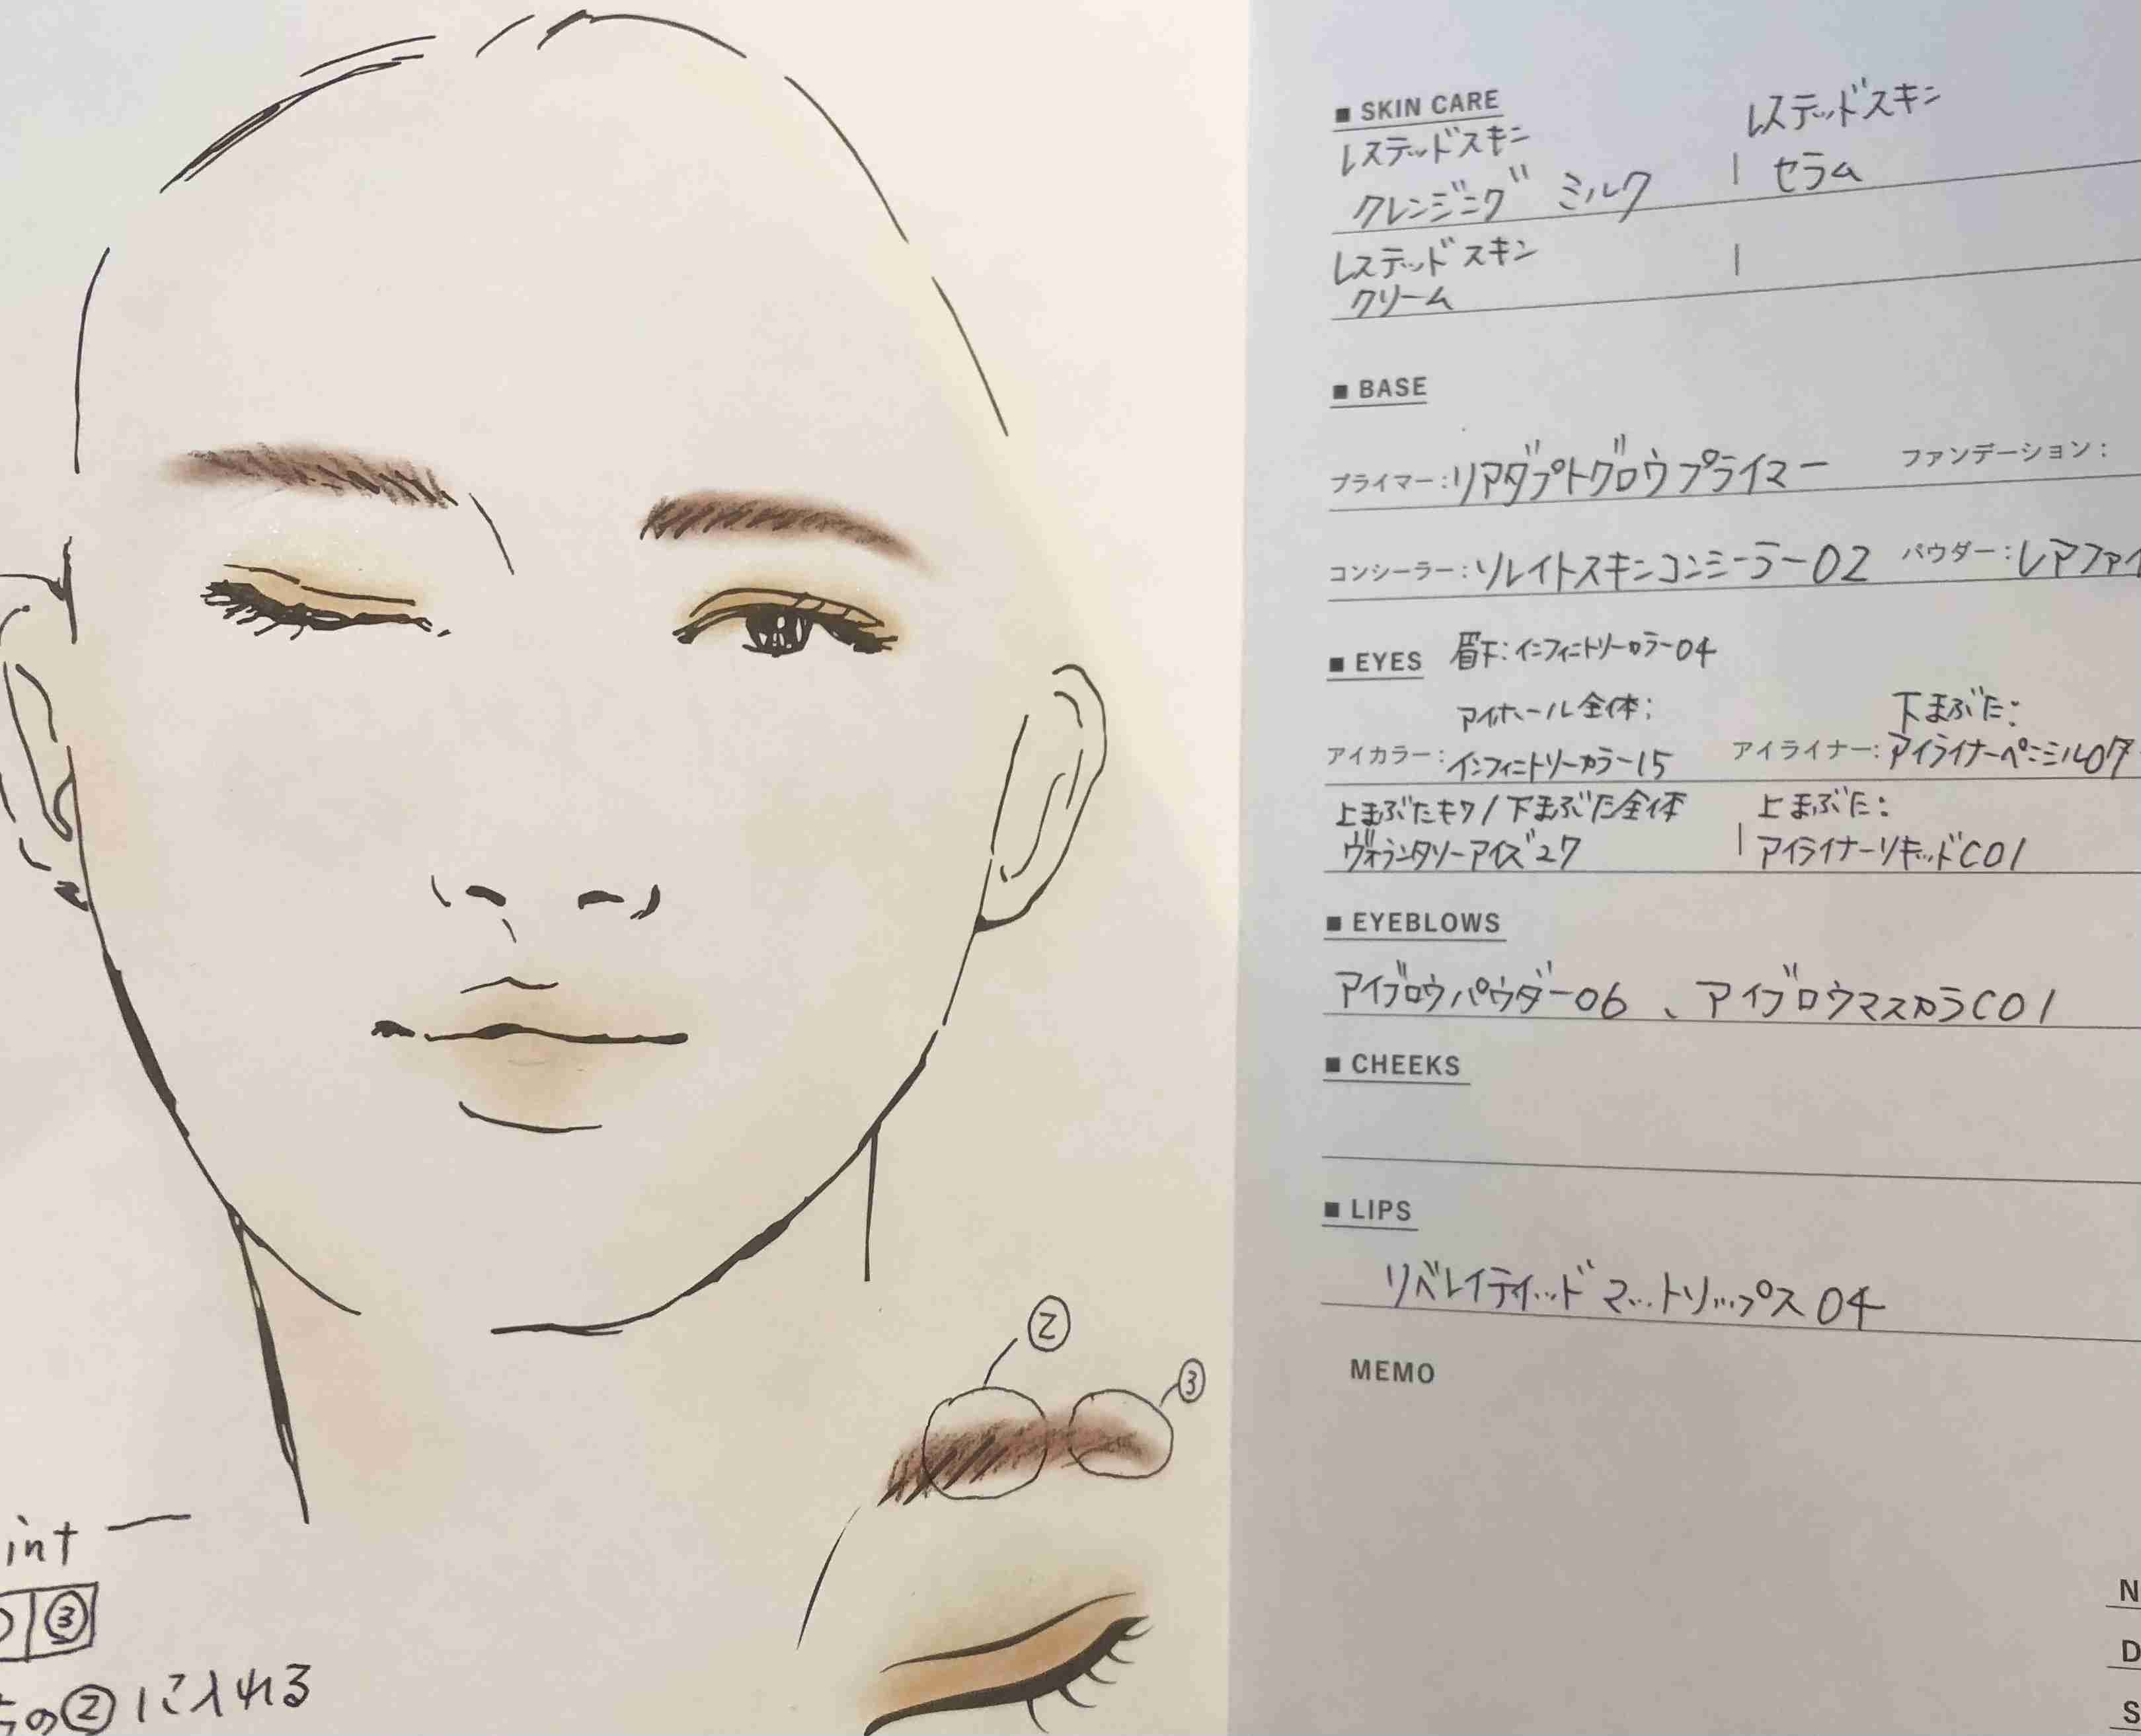 ■ SKIN CARE
レステッドスキン レステッドスキン
クレンジング ミルク | セラム
レステッドスキン |
クリーム
■ BASE
プライマー:リアダプトグロウプライマー ファンデーション:
コンシーラー:ソレイトスキンコンシーラー02 パウダー:レアファイ
■ EYES 眉下:インフィニトリーカラー04
アイホール全体: 下まぶた:
アイカラー:インフィニトリーカラー15 アイライナー:アイライナーペンシル07
上まぶたキワ/下まぶた全体 上まぶた:
ヴォランタリーアイズ27 | アイライナーリキッドC01
■ EYEBLOWS
アイブロウパウダー06、アイブロウマスカラC01
■ CHEEKS
■ LIPS
リベレイティッドマットリップス04
MEMO
②
③
int
③
の②に入れる
N
D
S